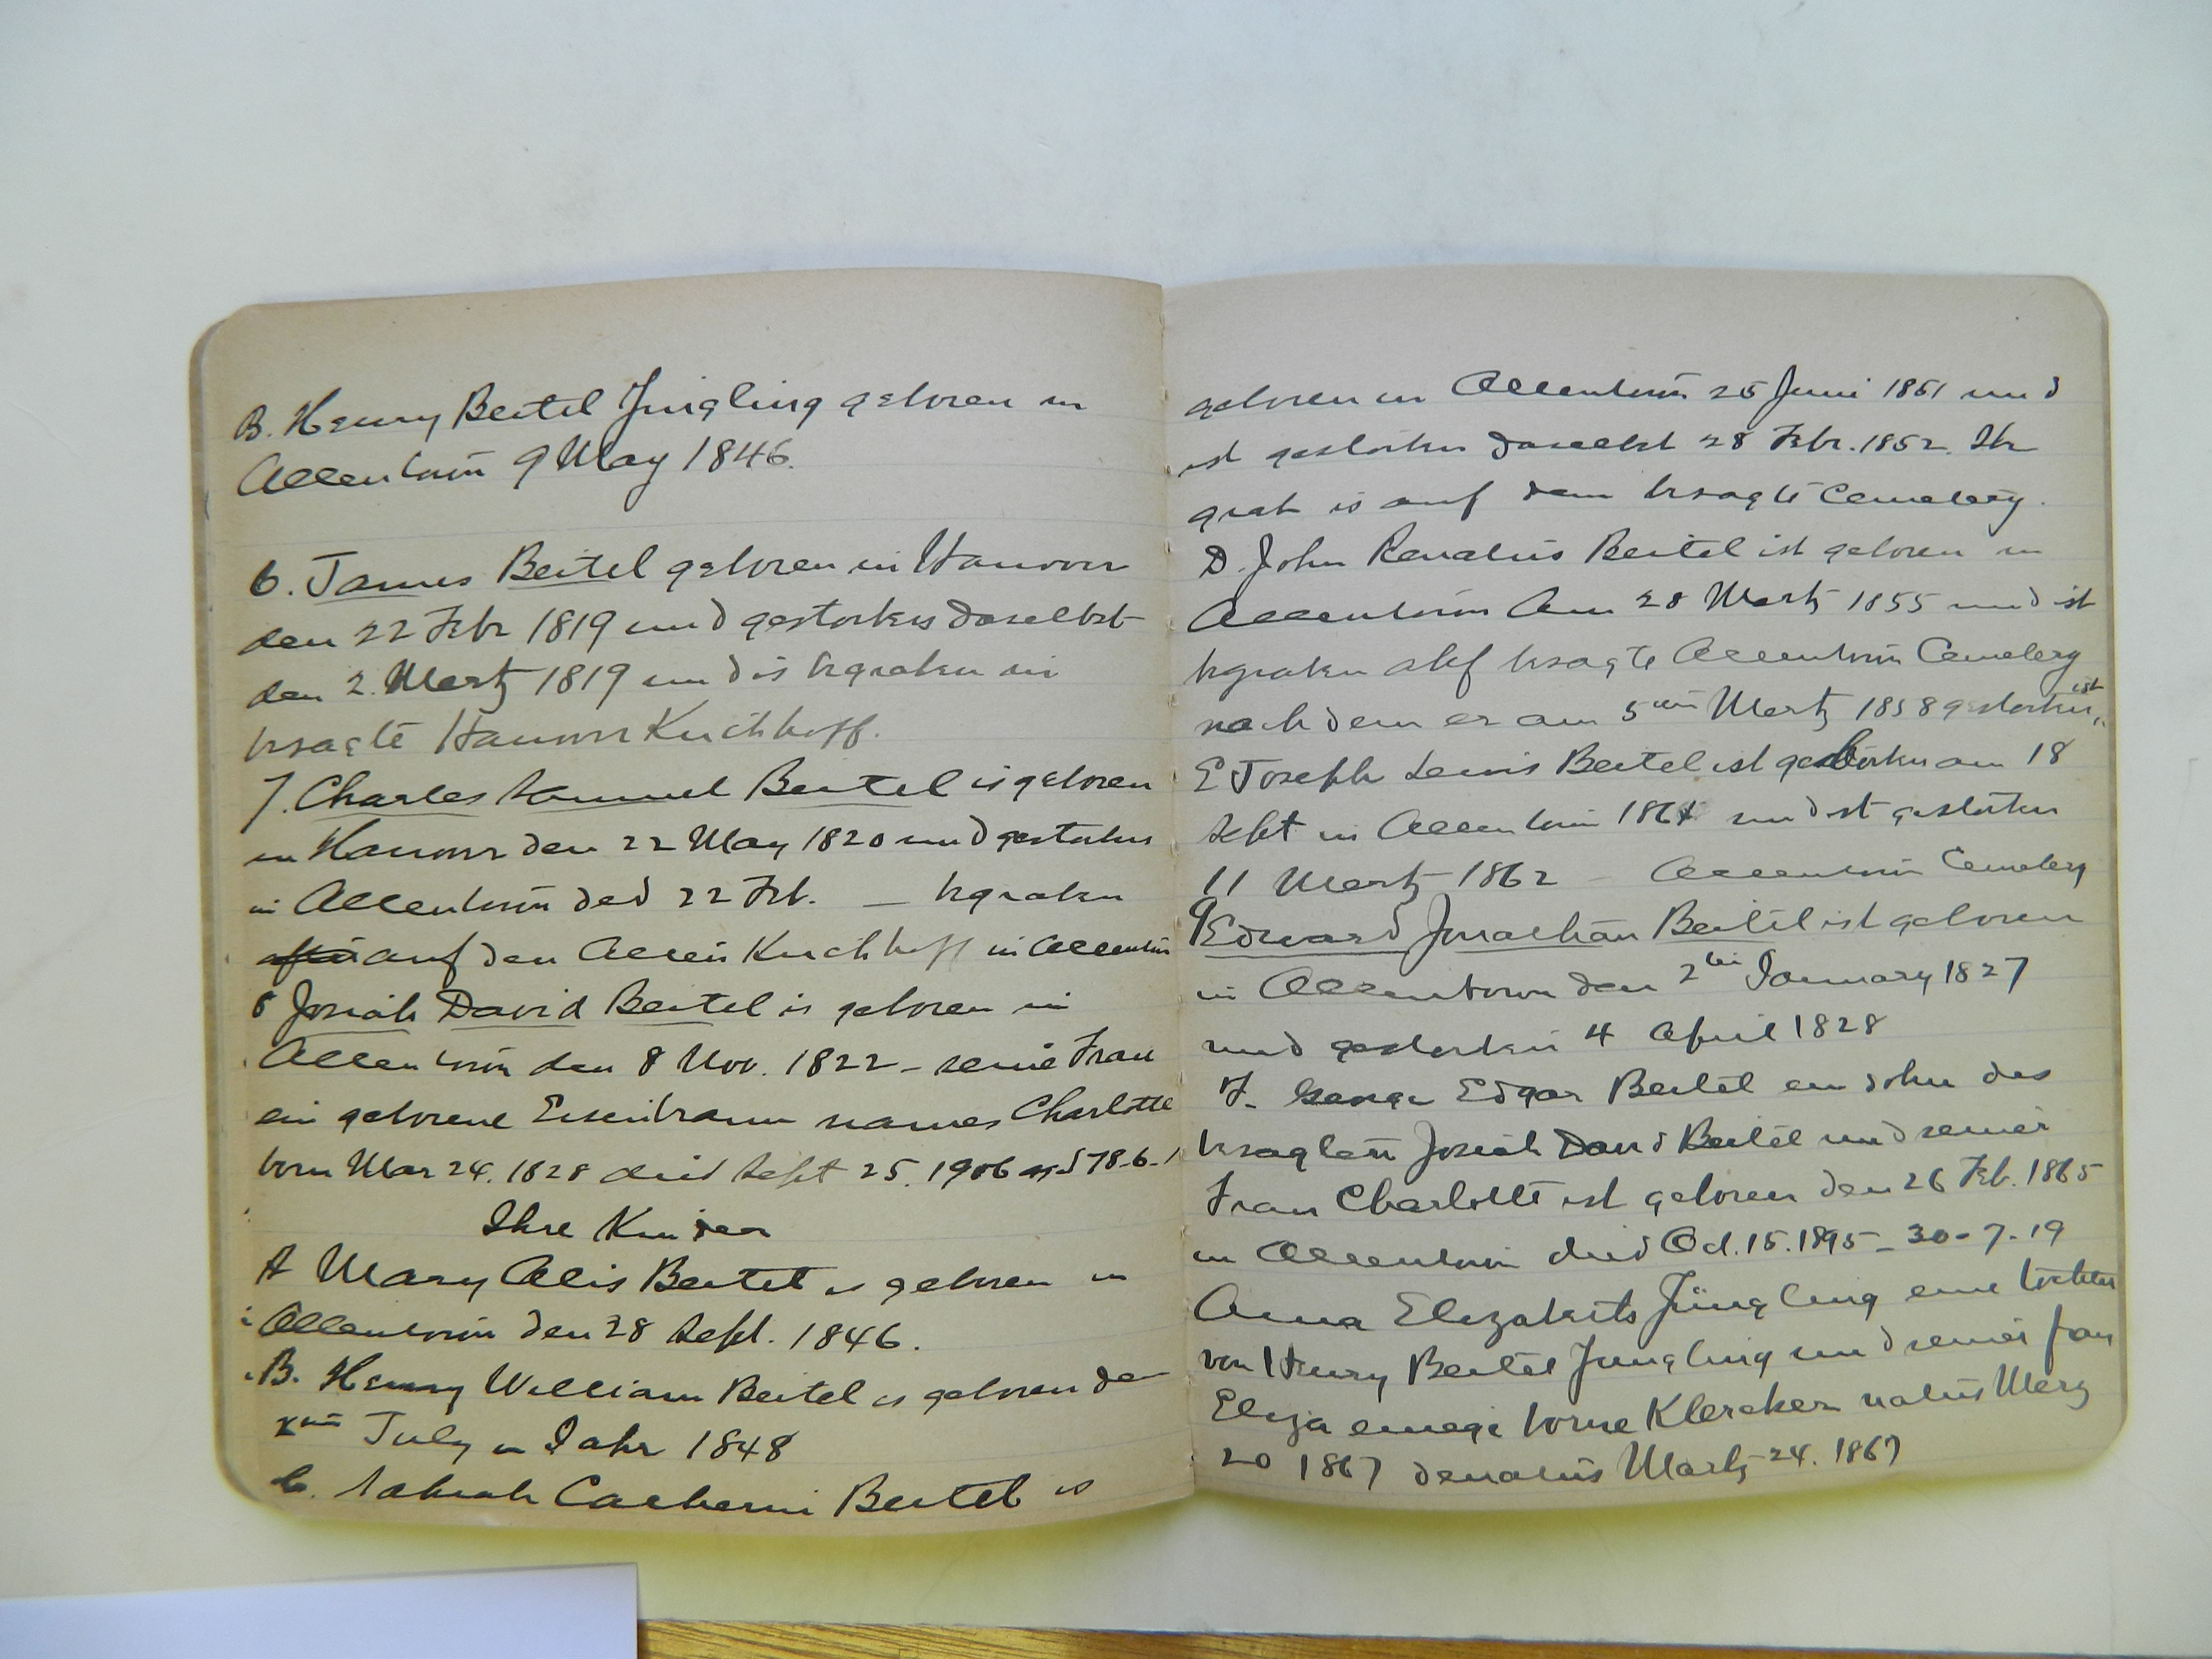 B. Henry Beitel Jüngling geboren in
Allentown 9 May 1846.
6. James Beitel geboren in Hanover
den 22 Febr 1819 und gestorben daselbst
den 2. Mertz 1819 und is begraben in
besagte Hanover Kirchhoff.
7. Charles Samuel Beitel is geboren
in Hanover den 22 May 1820 und gestorben
in Allentown ded 22 Feb. — begraben
auf den Allen Kirchhoff in Allentown
8 Josiah David Beitel is geboren in
Allentown den 8 Nov. 1822 – seine Frau
ein geborene Eisenbraun names Charlotte
born Mar 24. 1828 died Sept 25. 1906 78-6-1
Ihre Kinder
A Mary Alis Beitel is geboren in
Allentown den 28 Sept. 1846.
B. Henry William Beitel is geboren den
July in Jahr 1848
C. Sahrah Catherin Beitel is
geboren in Allentown 25 Juni 1851 und
ist gestorben daselbst 28 Febr. 1852. Ihr
grab is auf dem besagte Cemetery.
D. John Renatus Beitel ist geboren in
Allentown Am 28 Mertz 1855 und ist
begraben auf besagte Allentown Cemetery
nachdem er am 5ten Mertz 1858 gestorben ist
E Joseph Lewis Beitel ist geborken am 18
Sept in Allentown 1861 und ist gestorben
11 Mertz 1862 – Allentown Cemetery
9 Edward Jonathan Beitel ist geboren
in Allentown den 2ten January 1827
und gestorben 4 April 1828
F. George Edgar Beitel ein sohn des
besagten Josiah David Beitel und seiner
Frau Charlotte ist geboren den 26 Feb. 1865
in Allentown died Oct. 15. 1895 – 30-7-19
Anna Elizabeth Jüngling eine tochter
von Henry Beitel Jungling und seiner frau
Eliza eine geborne Klercker natus Merz
20 1867 denatus Martz 24. 1867